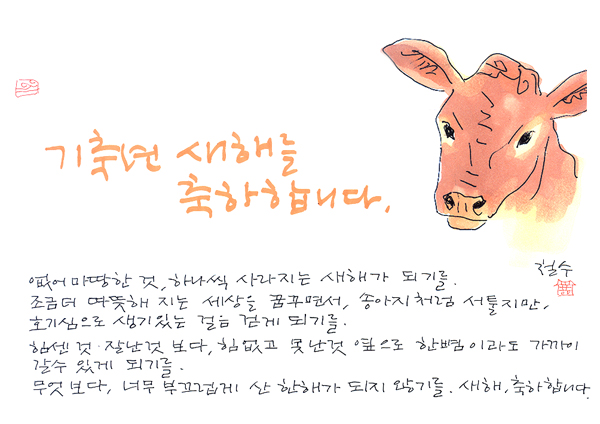 기축년 새해를
축하합니다.
철수
없어 마땅한 것, 하나씩 사라지는 새해가 되기를.
조금 더 따뜻해 지는 세상을 꿈꾸면서, 송아지처럼 서툴지만,
호기심으로 생기있는 걸음 걷게 되기를.
힘센 것·잘난것 보다, 힘없고 못난것 옆으로 한뼘이라도 가까이
갈수 있게 되기를.
무엇보다, 너무 부끄럽게 산 한해가 되지 않기를. 새해, 축하합니다.